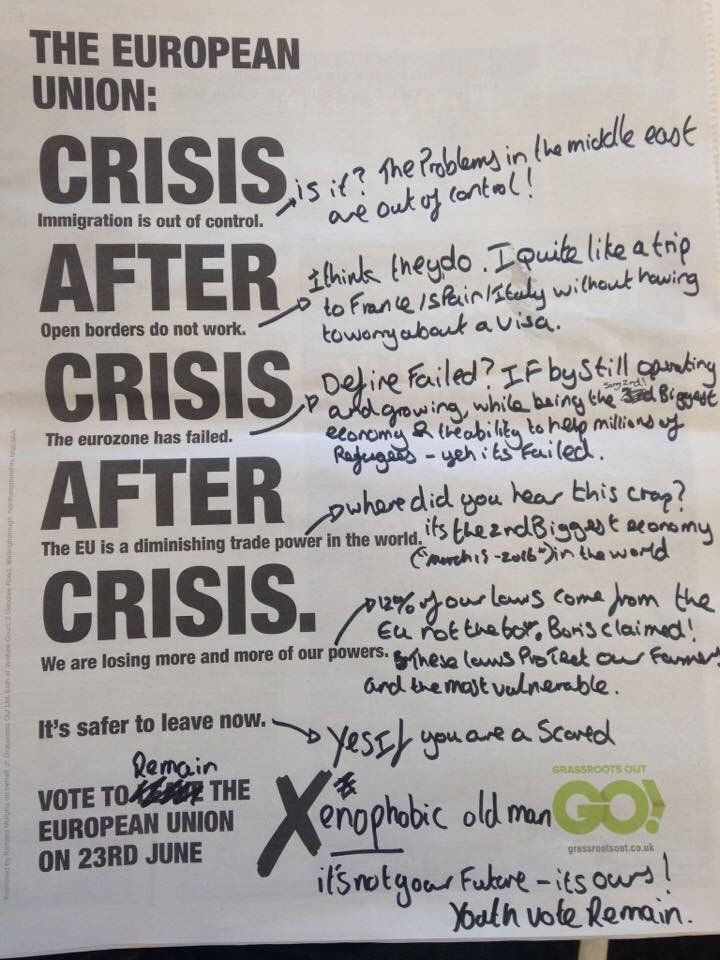 THE EUROPEAN
UNION:
CRISIS
Immigration is out of control.
is it? The Problems in the middle east
are out of control!
AFTER
Open borders do not work.
I think they do. I quite like a trip
to France/Spain/Italy without having
to worry about a visa.
CRISIS
The eurozone has failed.
Define Failed? IF by still operating
and growing, while being the Sorry 2nd! Biggest
economy & the ability to help millions of
Refugees - yeh its Failed.
AFTER
The EU is a diminishing trade power in the world.
where did you hear this crap?
its the 2nd Biggest economy
in the world
CRISIS.
We are losing more and more of our powers.
12% of our laws come from the
EU not the 60%. Boris claimed!
These laws ProTect our Farmers
and the most vulnerable.
It's safer to leave now.
Yes If you are a Scared
Remain
VOTE TO THE
EUROPEAN UNION
ON 23RD JUNE
Xenophobic old man
GRASSROOTS OUT
GO!
grassrootsout.co.uk
it's not your Future - its ours!
Youth vote Remain.